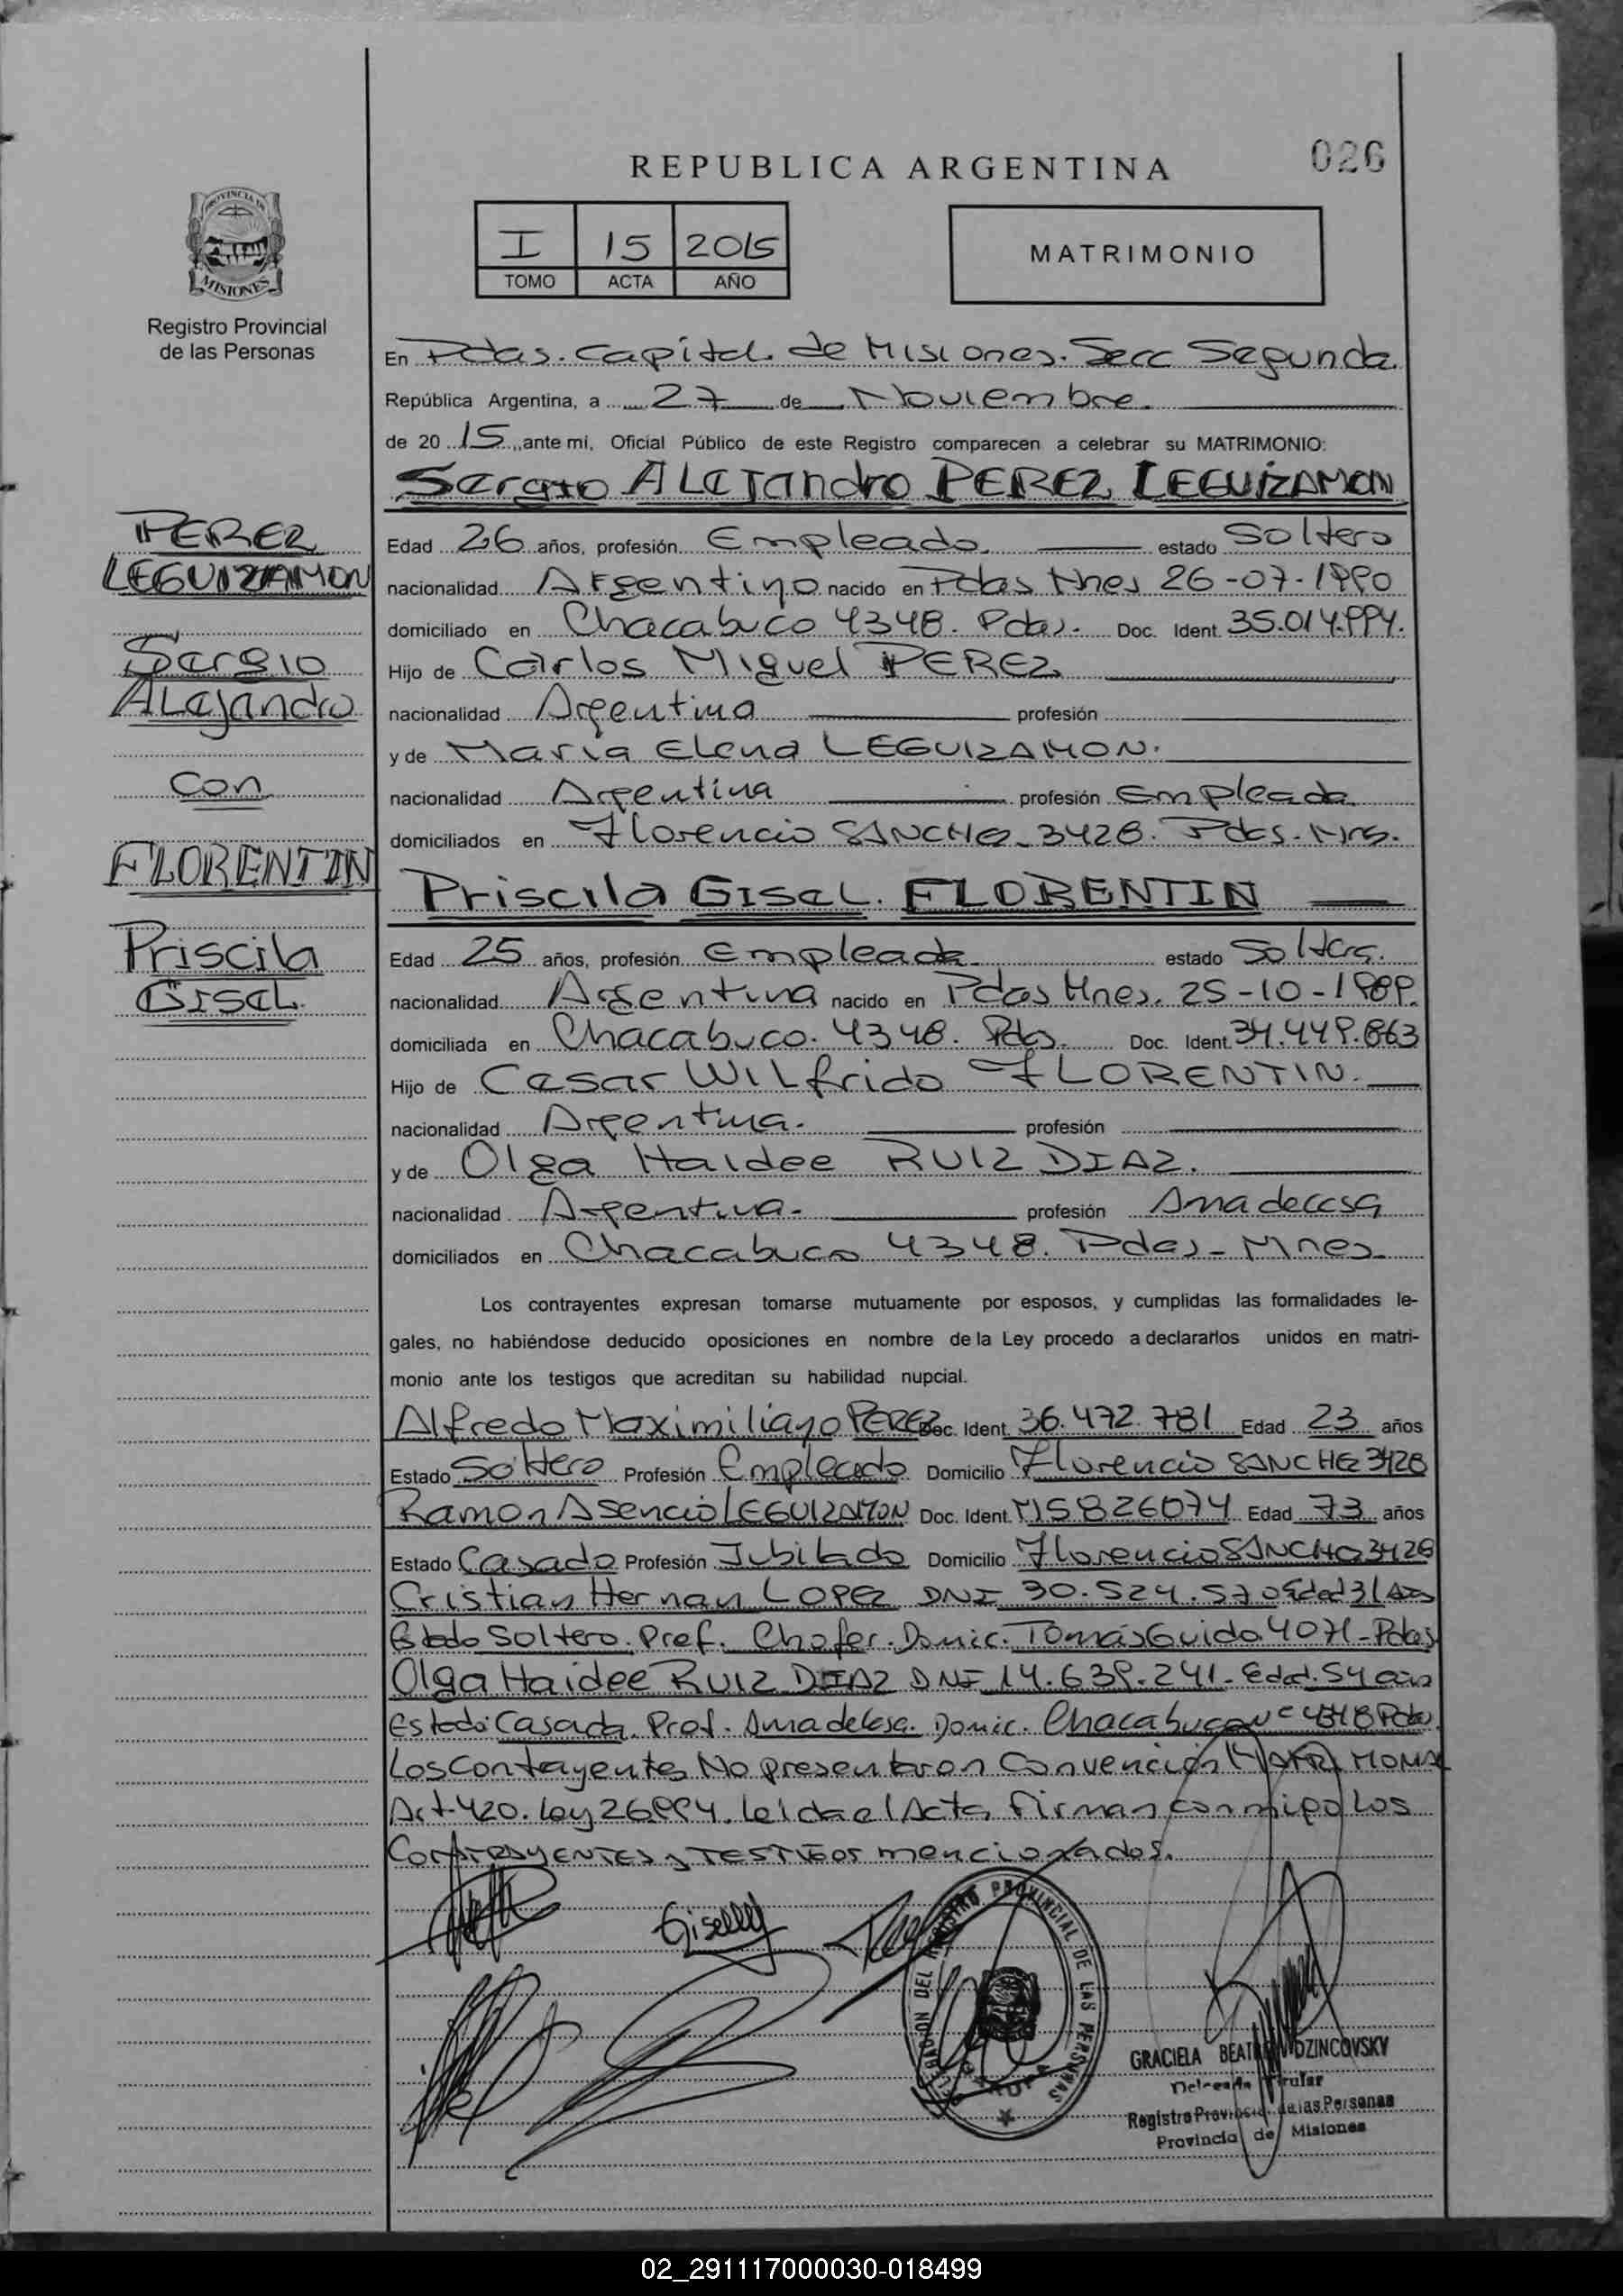 026
REPUBLICA ARGENTINA
I 15 2015
TOMO ACTA AÑO
MATRIMONIO
PROVINCIA DE
MISIONES
Registro Provincial
de las Personas
PEREZ
LEGUIZAMON
Sergio
ALejandro
Con
FLORENTIN
Priscila
GISEL
En Pdas. Capital de Misiones. Secc Segunda.
República Argentina, a 27 de Noviembre.
de 20 15, ante mí, Oficial Público de este Registro comparecen a celebrar su MATRIMONIO:
Sergio ALeJandro PEREZ LEGUIZAMON
Edad 26 años, profesión Empleado estado Soltero
nacionalidad Argentino nacido en Pdas Mnes 26-07-1990
domiciliado en Chacabuco 4348. Pdas. Doc. Ident. 35.014.994.
Hijo de Carlos Miguel PEREZ
nacionalidad Argentina profesión
y de Maria Elena LEGUIZAMON.
nacionalidad Argentina profesión Empleada
domiciliados en Florencio SANCHEZ 3428. Pdas. Mns.
Priscila GISEL. FLORENTIN
Edad 25 años, profesión Empleada estado Soltera.
nacionalidad Argentina nacido en Pdas Mnes. 25-10-1989.
domiciliada en Chacabuco. 4348. Pdas. Doc. Ident. 34.449.863
Hijo de Cesar WILfrido FLORENTIN.
nacionalidad Argentina. profesión
y de Olga Haidee RUIZ DIAZ.
nacionalidad Argentina. profesión Ama decasa
domiciliados en Chacabuco 4348. Pdas - Mnes
Los contrayentes expresan tomarse mutuamente por esposos, y cumplidas las formalidades le-
gales, no habiéndose deducido oposiciones en nombre de la Ley procedo a declararlos unidos en matri-
monio ante los testigos que acreditan su habilidad nupcial.
Alfredo Maximiliano PEREZ Doc. Ident. 36.472.781 Edad 23 años
Estado Soltero Profesión Empleado Domicilio Florencio SANCHEZ 3428
Ramon Asencio LEGUIZAMON Doc. Ident. M5826074 Edad 73 años
Estado Casado Profesión Jubilado Domicilio Florencio SANCHEZ 3428
Cristian Hernan LOPEZ DNI 30.524.570 Edad 31 Años
Estado Soltero. Prof. Chofer. Domic. Tomás Guido 4071-Pdas
Olga Haidee RUIZ DIAZ DNI 14.639.241. Edad. 54 años
Estado: Casada. Prof. Amadecasa. Domic. Chacabuco Nº 4348 Pdas.
Los Contrayentes No presentaron Convención MATRIMONIAL
Art. 420. Ley 26.994. Leida el Acta, Firman con migo Los
CONTRAYENTES y TESTIGOS mencionados.
Giselly
DELEGACION DEL REGISTRO PROVINCIAL DE LAS PERSONAS
GRACIELA DZINCOVSKY
Delegada Titular
Registro Provincial de las Personas
Provincia de Misiones
02_291117000030-018499